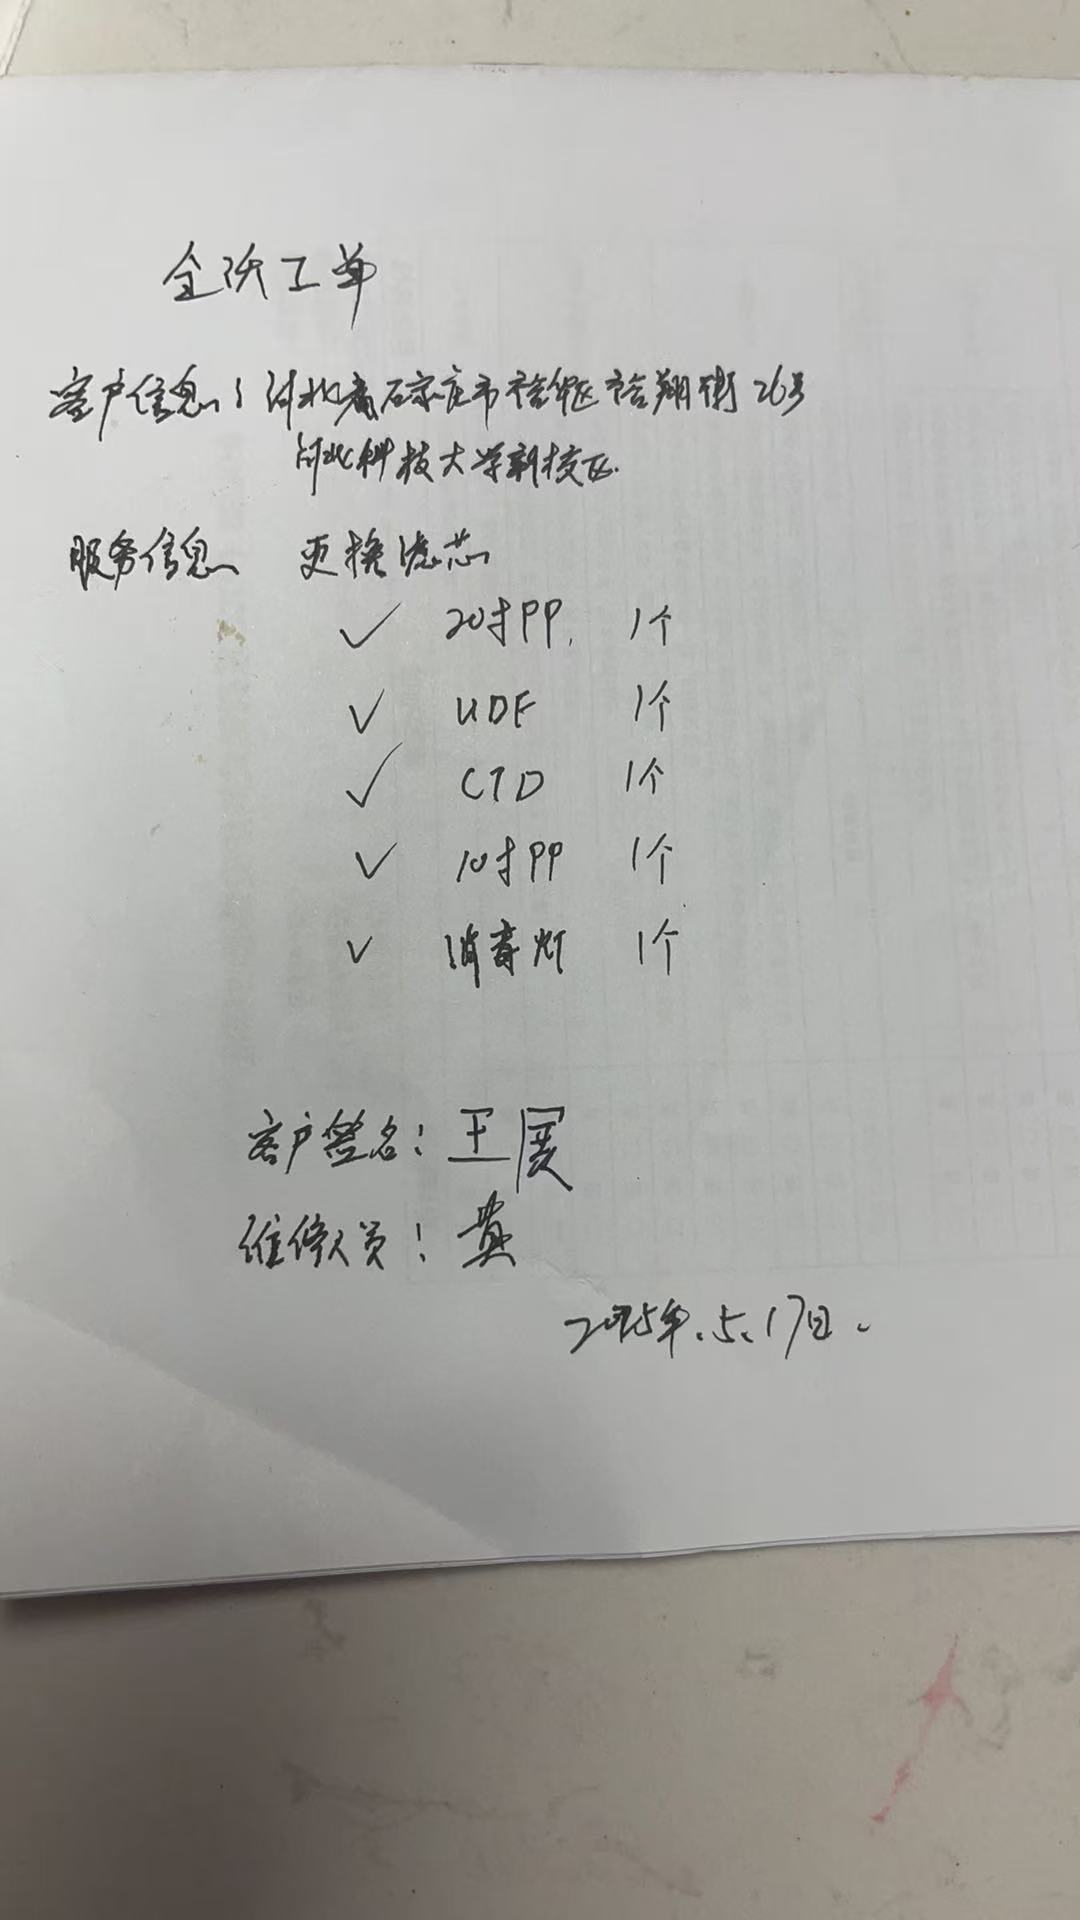 全沃工单
客户信息: 河北省石家庄市裕华区裕翔街26号
河北科技大学新校区.
服务信息 更换滤芯
✓ 20寸PP. 1个
✓ UDF 1个
✓ CTO 1个
✓ 10寸PP 1个
✓ 消毒灯 1个
客户签名: 王
维修人员: 黄
2025年.5.17日.